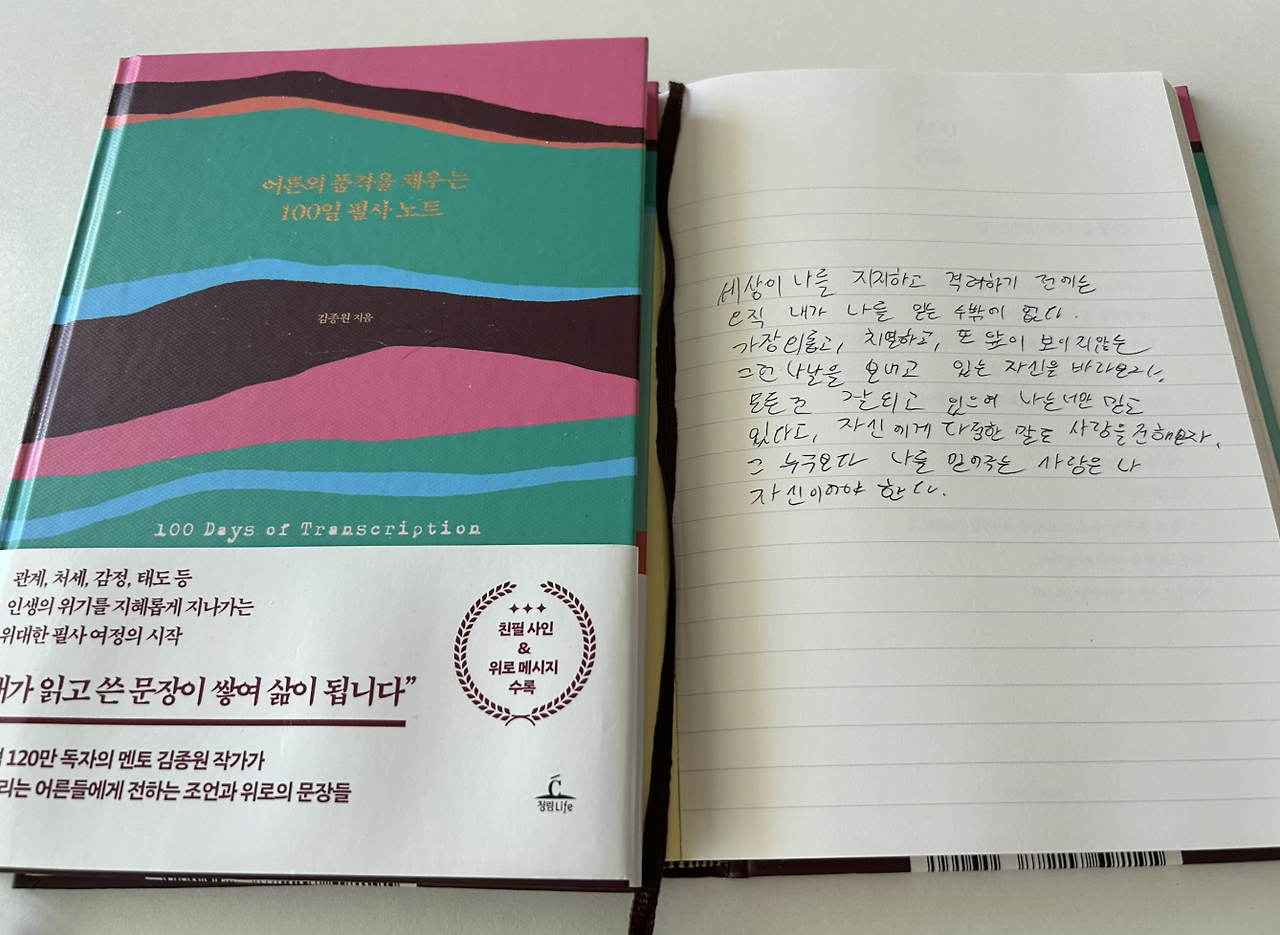 어른의 품격을 채우는
100일 필사 노트
김종원 지음
100 Days of Transcription
관계, 처세, 감정, 태도 등
인생의 위기를 지혜롭게 지나가는
위대한 필사 여정의 시작
읽고 쓴 문장이 쌓여 삶이 됩니다”
120만 독자의 멘토 김종원 작가가
어른들에게 전하는 조언과 위로의 문장들
친필 사인
&
위로 메시지
수록
청림Life
세상이 나를 지지하고 격려하기 전에는
오직 내가 나를 믿는 수밖에 없다.
가장 외롭고, 치열하고, 또 앞이 보이지않는
그런 나날을 보내고 있는 자신을 바라보라.
모든 건 잘 되고 있으며 나는 너만 믿고
있다고, 자신에게 다정한 말로 사랑을 전해보자.
그 누구보다 나를 믿어주는 사람은 나
자신이어야 한다.